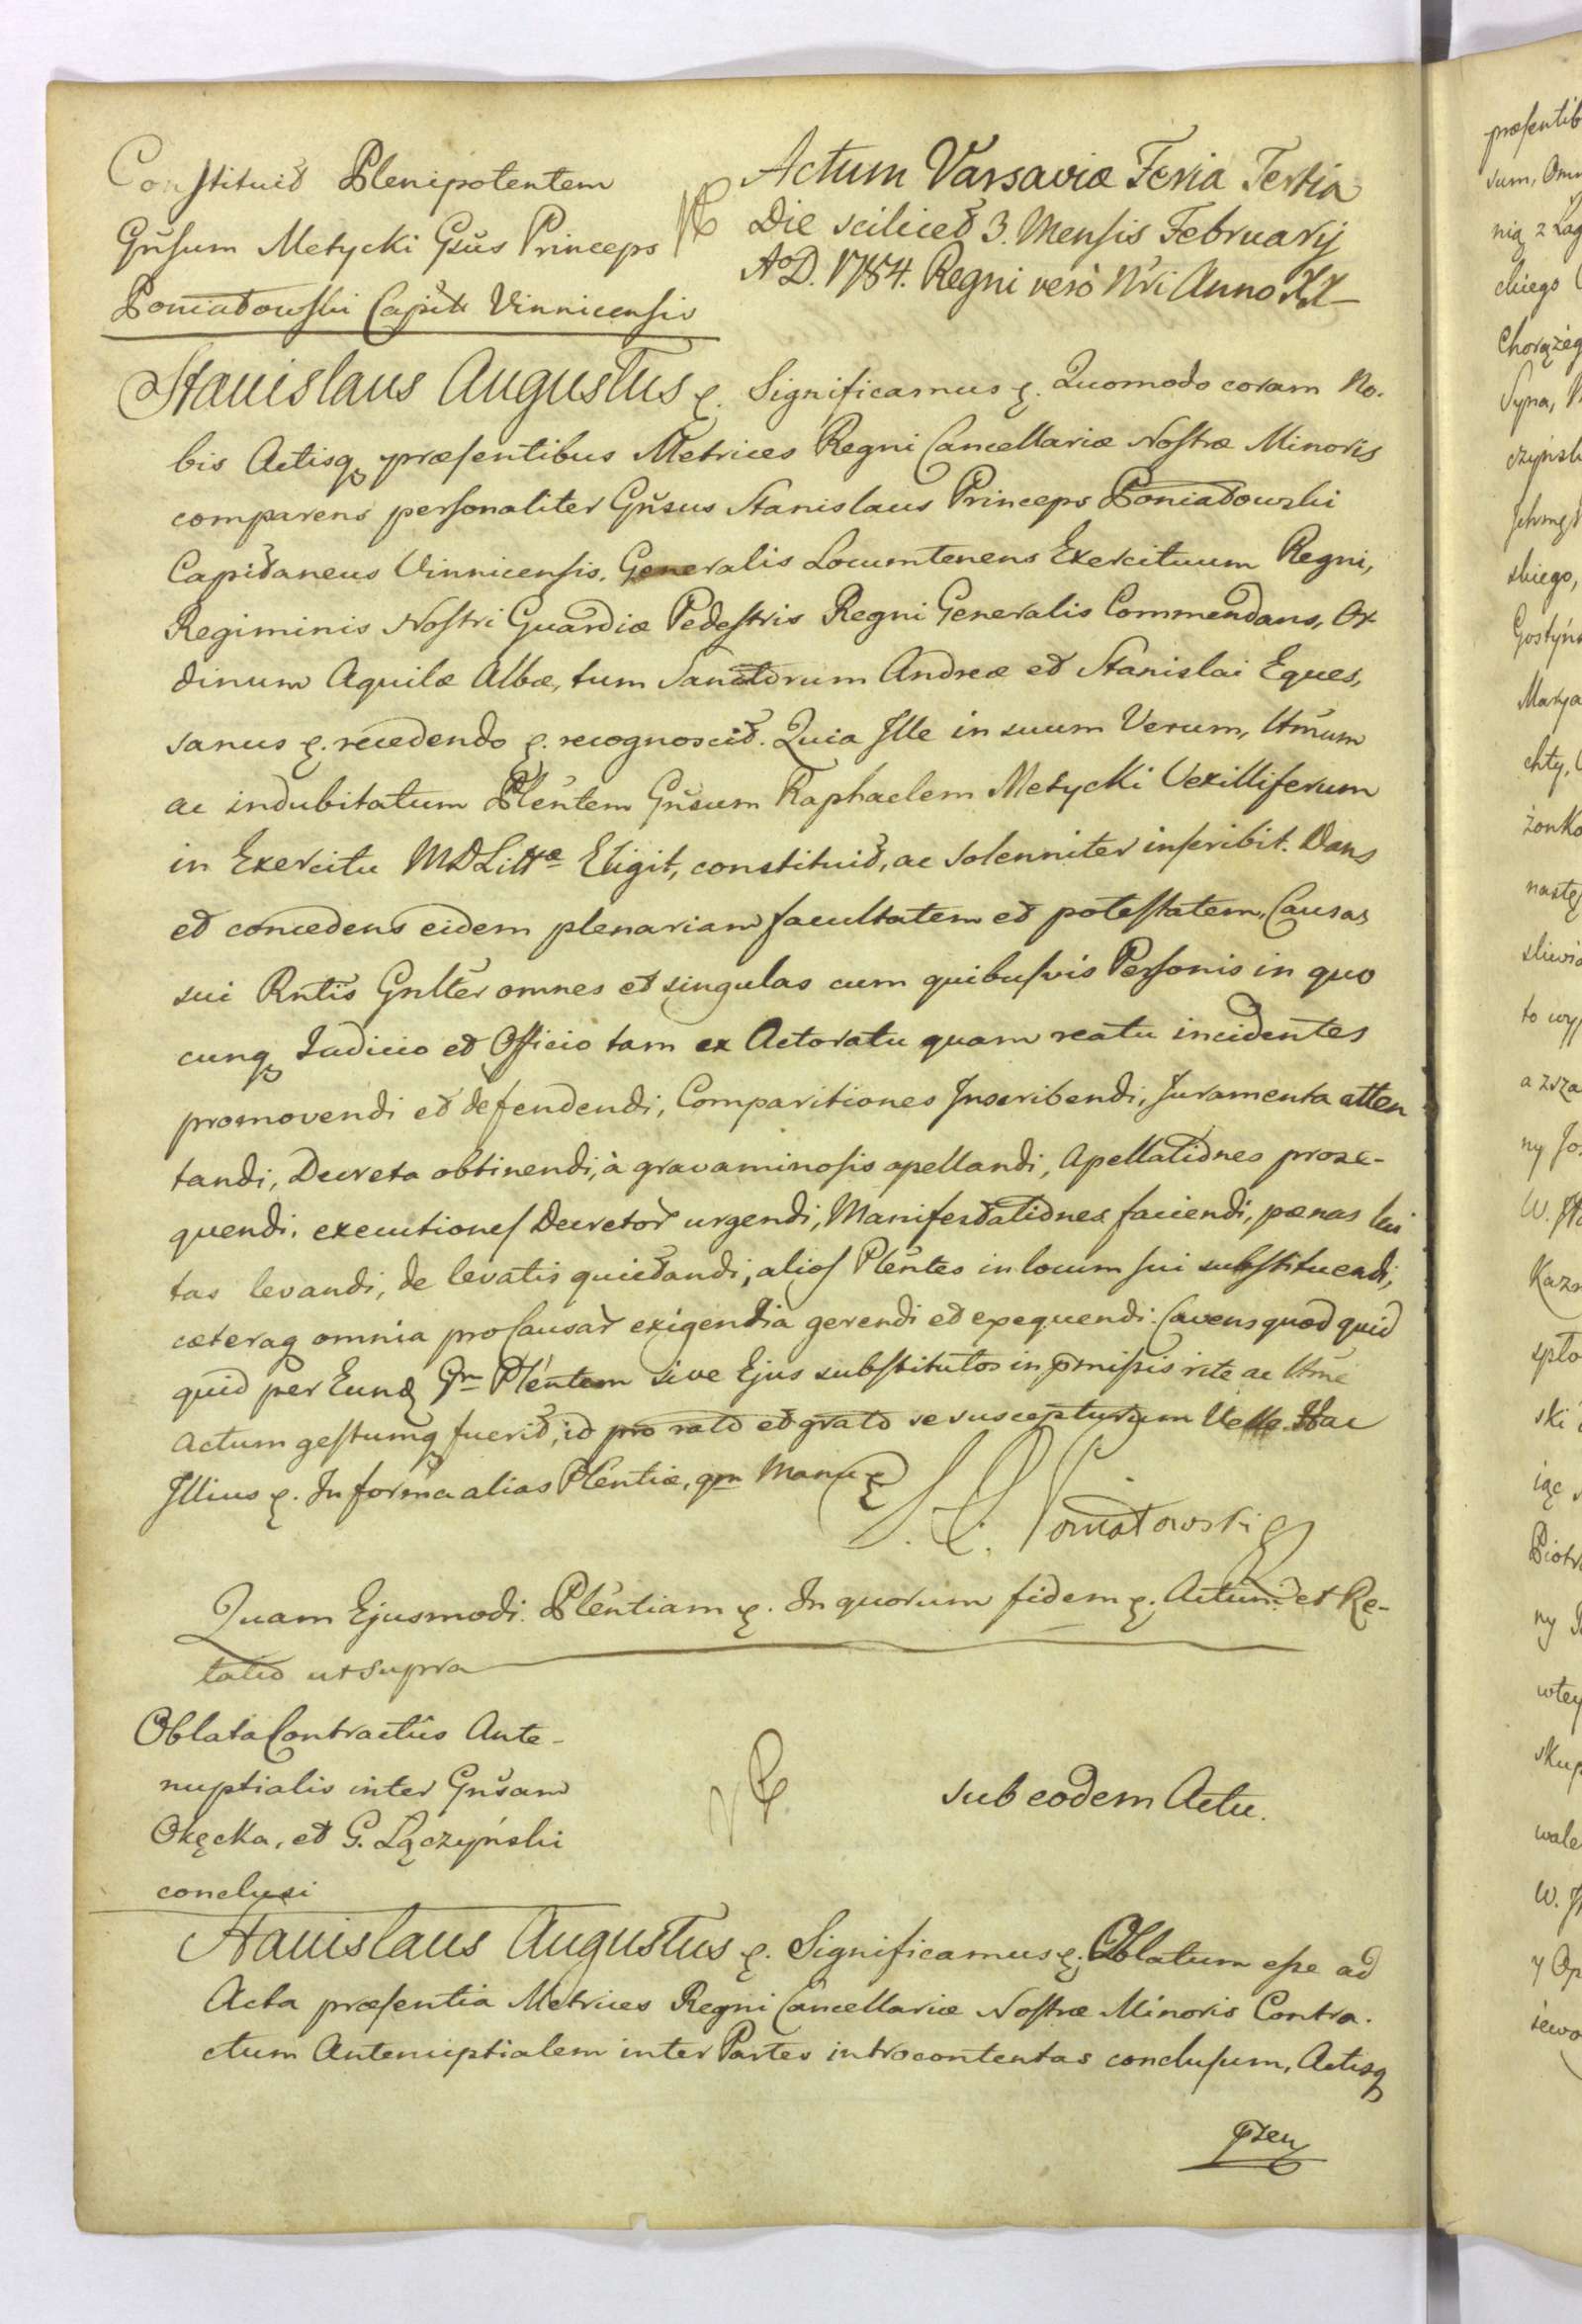 Constituit Plenipotentem
Gnsum Metycki Gsus Princeps
Poniatowski Capit Vinnicensis
Actum Varsaviæ Feria Tertia
Die scilicet 3. Mensis Februarij
A°D. 1784. Regni verò Nri Anno XX
Stanislaus Augustus &. Significamus &. Quomodo coram No.
bis Actisq præsentibus Metrices Regni Cancellariæ Nostræ Minoris
comparens personaliter Gnsus Stanislaus Princeps Poniatowski
Capitaneus Vinnicensis, Generalis Locumtenens Exercituum Regni,
Regiminis Nostri Guardiæ Pedestris Regni Generalis Commendans, Or
dinum Aquilæ Albæ, tum Sanctorum Andreæ et Stanislai Eques,
sanus &. recedendo &. recognoscit. Quia Ille in suum Verum, Ltmum
ac indubitatum Plentem Gnsum Raphaelem Metycki Vexilliferum
in Exercitu MDLittæ Eligit, constituit, ac solenniter inscribit. Dans
et concedens eidem plenariam facultatem et potestatem, Causas
sui Rntis Gnlter omnes et singulas cum quibusvis Personis in quo
cunq Iudicio et Officio tam ex Actoratu quam reatu incidentes
promovendi et defendendi, Comparitiones Inscribendi, Juramenta atten
tandi, Decreta obtinendi, à gravaminosis apellandi, Apellationes prose-
quendi, executiones Decretor urgendi, Manifestationes faciendi, pænas lui
tas levandi, de levatis quietandi, alios Plentes in locum sui substituendi,
cæteraq omnia pro Causar exigentia gerendi et exequendi. Cavens quod quid
quid per Eund Gm Plentem sive Ejus substitutos in præmissis rite ac Ltme
Actum gestumq fuerit, id pro rato et grato se suscepturum Velle. Hac
Illius &. In forma alias Plentiæ, qm Manu &
S. P. Poniatowski
Quam Ejusmodi Plentiam &. In quorum fidem &. Actum et Re-
latio ut supra
Oblata Contractûs Ante-
nuptialis inter Gnsam
Okęcka, et G. Lączyński
conclusi
sub eodem Actu.
Stanislaus Augustus &. Significamus &. Oblatum esse ad
Acta præsentia Metrices Regni Cancellariæ Nostræ Minoris Contra.
ctum Antenuptialem inter Partes introcontentas conclusum, Actisq